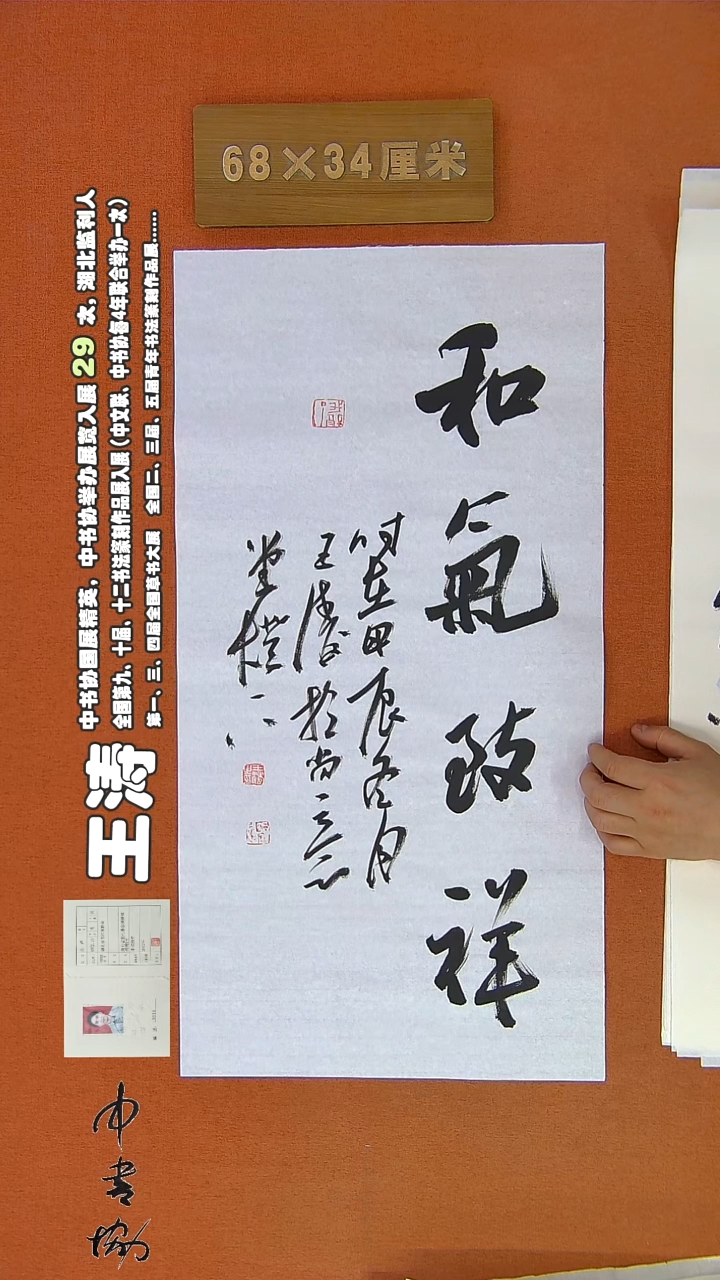 68×34厘米
和氣致祥
时在甲辰冬月
王涛於尚一三意
堂
王涛
中书协国展精英，中书协举办展览入展29次，湖北监利人
全国第九、十届、十二书法篆刻作品展入展（中文联、中书协每4年联合举办一次）
第一、三、四届全国草书大展 全国二、三届、五届青年书法篆刻作品展……
中书协